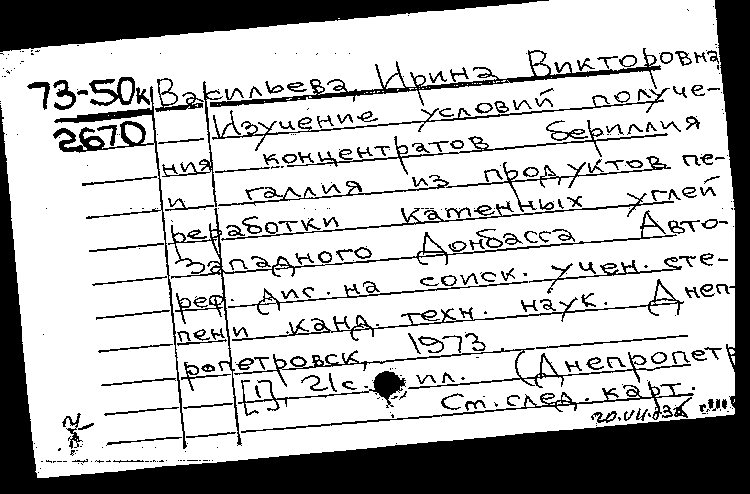 73-50к Васильева, Ирина Викторовна
2670 Изучение условий получе-
ния концентратов бериллия
и галлия из продуктов пе-
реработки каменных углей
Западного Донбасса. Авто-
реф. дис. на соиск. учен. сте-
пени канд. техн. наук. Днеп-
ропетровск, 1973.
[1], 21с. ил. (Днепропетр
См. след. карт.